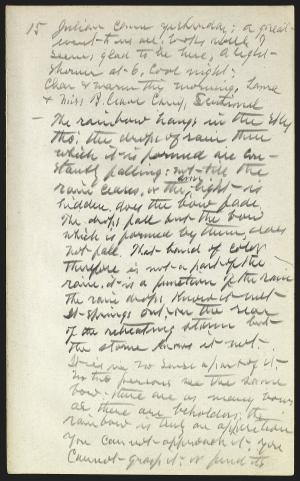 15 Julian came yesterday; a great
event to us all, looks well,
seems glad to be here; a light
shower at 6, Cool night;
Clear & warm this morning,
& Miss B. Came
— The rainbow hangs in the sky
tho' the drops of rain thro
which it is formed are con-
stantly falling; not till the
rain ceases, or the sun light is
hidden does the bow fade.
The drops fall but the bow
which is formed by them, does
not fall. That band of color
therefore is not a part of the
rain, it is a function of the rain
the rain drops know it not
It springs out in the rear
of the retreating storm but
the storm knows it not.
It is in no sense a part of it;
no two persons see the same
bow. There are as many bows
as there are beholders; the
rainbow is but an apparition
You can not approach it; You
cannot grasp it; or find its